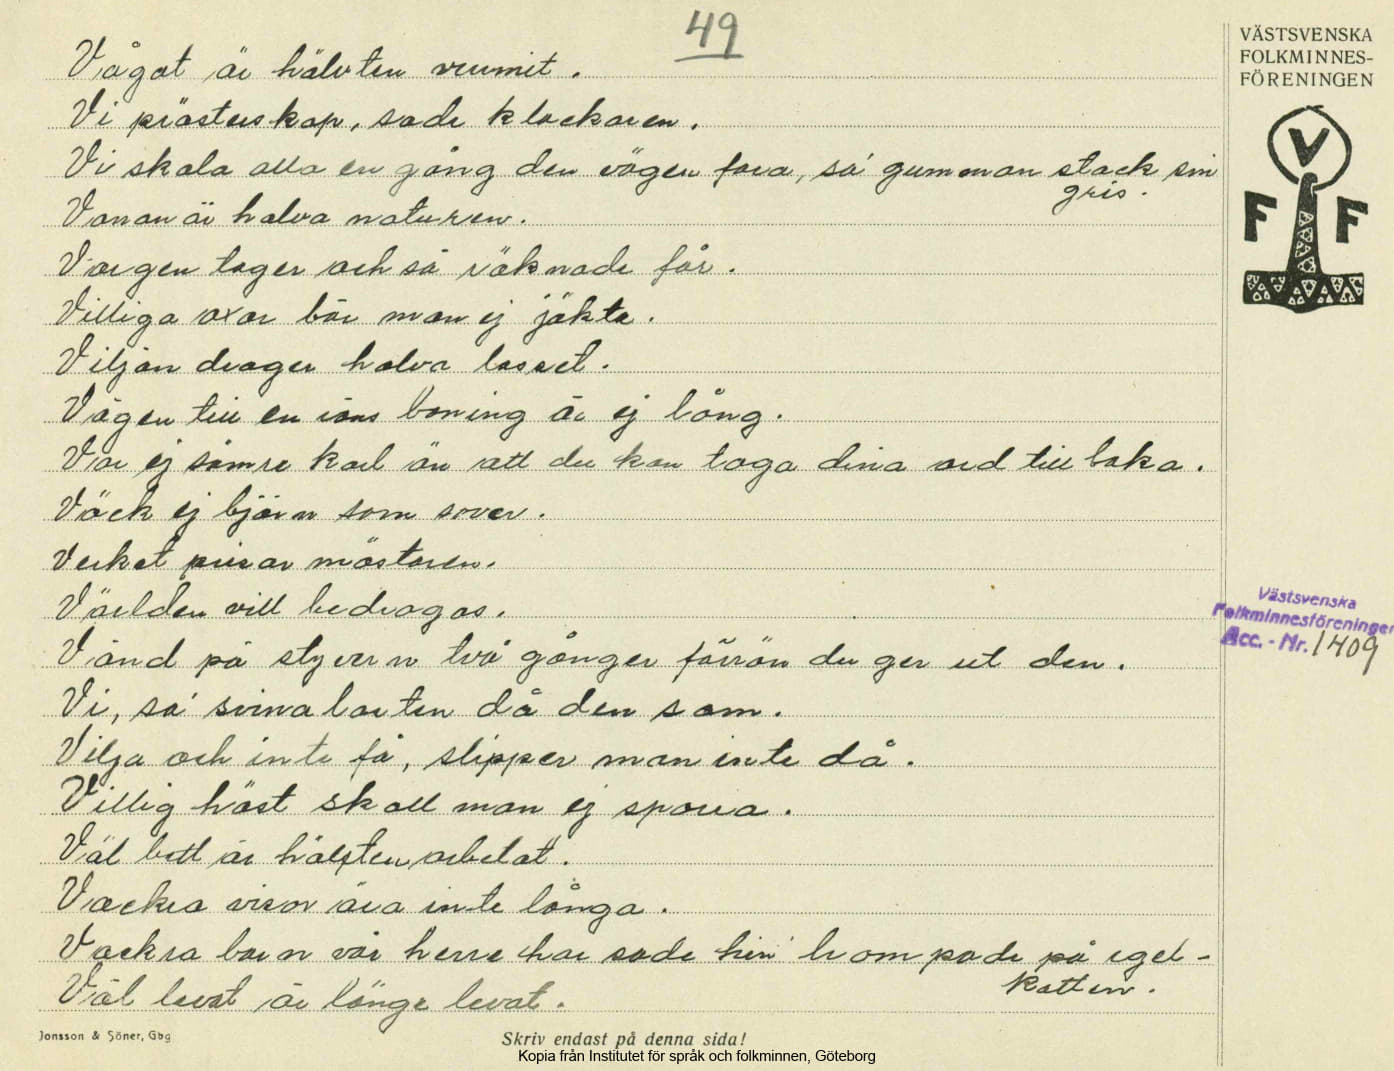 49
Vågat är hälvten vunnit.
Vi prästerskap, sade klockaren.
Vi skola alla en gång den vägen fara, sa' gumman stack sin
gris.
Vanan är halva naturen.
Vargen tager och så räknade får.
Villiga oxar bör man ej jäkta.
Viljan drager halva lasset.
Vägen till en väns boning är ej lång.
Var ej sämre karl än att du kan taga dina ord tillbaka.
Väck ej björn som sover.
Verket prisar mästaren.
Världen vill bedragas.
Vänd på styvern två gånger förrän du ger ut den.
Vi, sa' svinalorten då den sam.
Vilja och inte få, slipper man inte då.
Villig häst skall man ej sporra.
Väl bett är hälften arbetat.
Vackra visor äro inte långa.
Vackra barn vår herre har sade hin' krampade på igel-
kotten.
Väl levat är länge levat.
VÄSTSVENSKA
FOLKMINNES-
FÖRENINGEN
V
F F
Västsvenska
Folkminnesföreningen
Acc. - Nr. 1409
Jonsson & Söner, Gbg
Skriv endast på denna sida!
Kopia från Institutet för språk och folkminnen, Göteborg